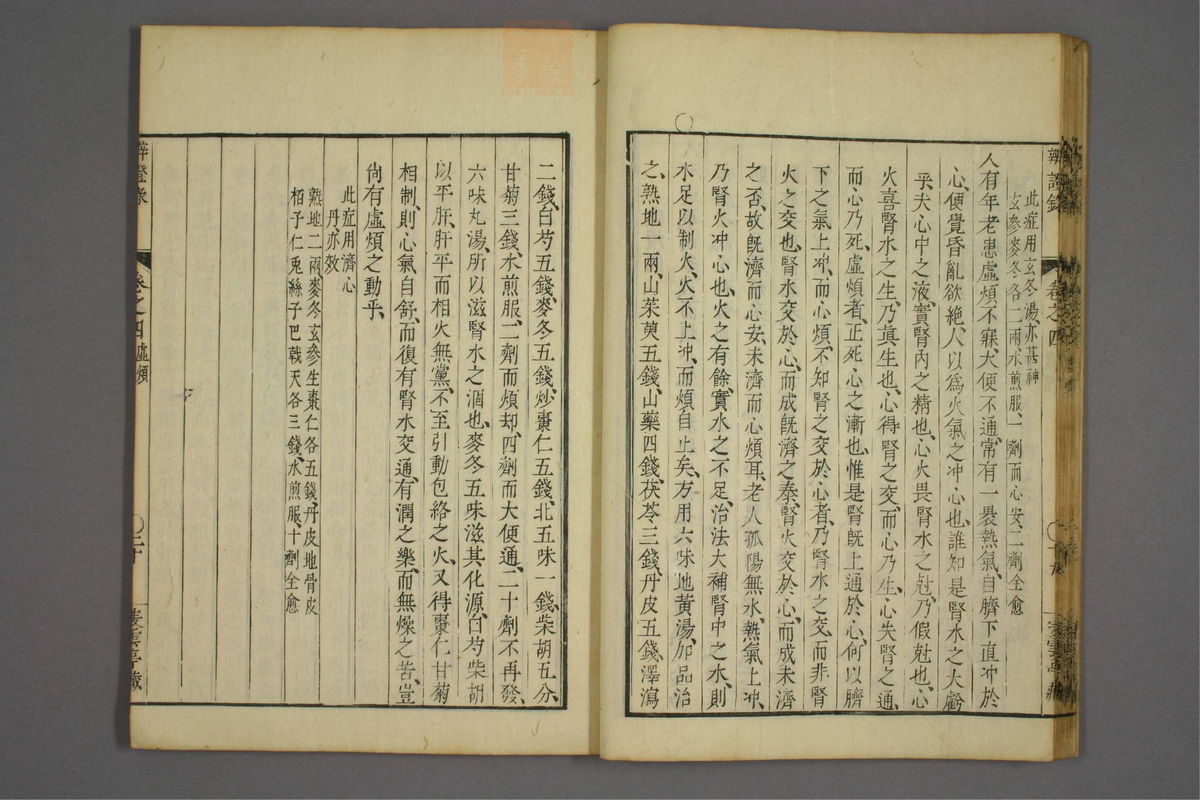 辨證錄　卷之四
此症用玄冬湯、亦甚神
玄參麥冬各二兩水煎服、一劑而心安、二劑全愈
人有年老患虛煩不寐、大便不通、常有一裊熱氣、自臍下直冲於
心、便覺昏亂欲絕、人以爲火氣之冲心也、誰知是腎水之大虧
乎、夫心中之液、實腎內之精也、心火畏腎水之尅、乃假尅也、心
火喜腎水之生、乃眞生也、心得腎之交、而心乃生、心失腎之通、
而心乃死、虛煩者、正死心之漸也、惟是腎既上通於心、何以臍
下之氣上冲、而心煩、不知腎之交於心者、乃腎水之交、而非腎
火之交也、腎水交於心、而成既濟之泰、腎火交於心、而成未濟
之否、故既濟而心安、未濟而心煩耳、老人孤陽無水、熱氣上冲、
乃腎火冲心也、火之有餘、實水之不足、治法大補腎中之水、則
水足以制火、火不上冲、而煩自止矣、方用六味地黃湯、加品治
之、熟地一兩、山茱萸五錢、山藥四錢、茯苓三錢、丹皮五錢、澤瀉
二錢、白芍五錢、麥冬五錢、炒棗仁五錢、北五味一錢、柴胡五分、
甘菊三錢、水煎服、二劑而煩却、四劑而大便通、二十劑不再發、
六味丸湯、所以滋腎水之涸也、麥冬五味滋其化源、白芍柴胡
以平肝、肝平而相火無黨、不至引動包絡之火、又得棗仁甘菊
相制、則心氣自舒、而復有腎水交通、有潤之樂、而無燥之苦、豈
尚有虛煩之動乎、
此症用濟心
丹亦效
熟地二兩麥冬玄參生棗仁各五錢、丹皮地骨皮
栢子仁兎絲子巴戟天各三錢、水煎服、十劑全愈
卷之四虛煩